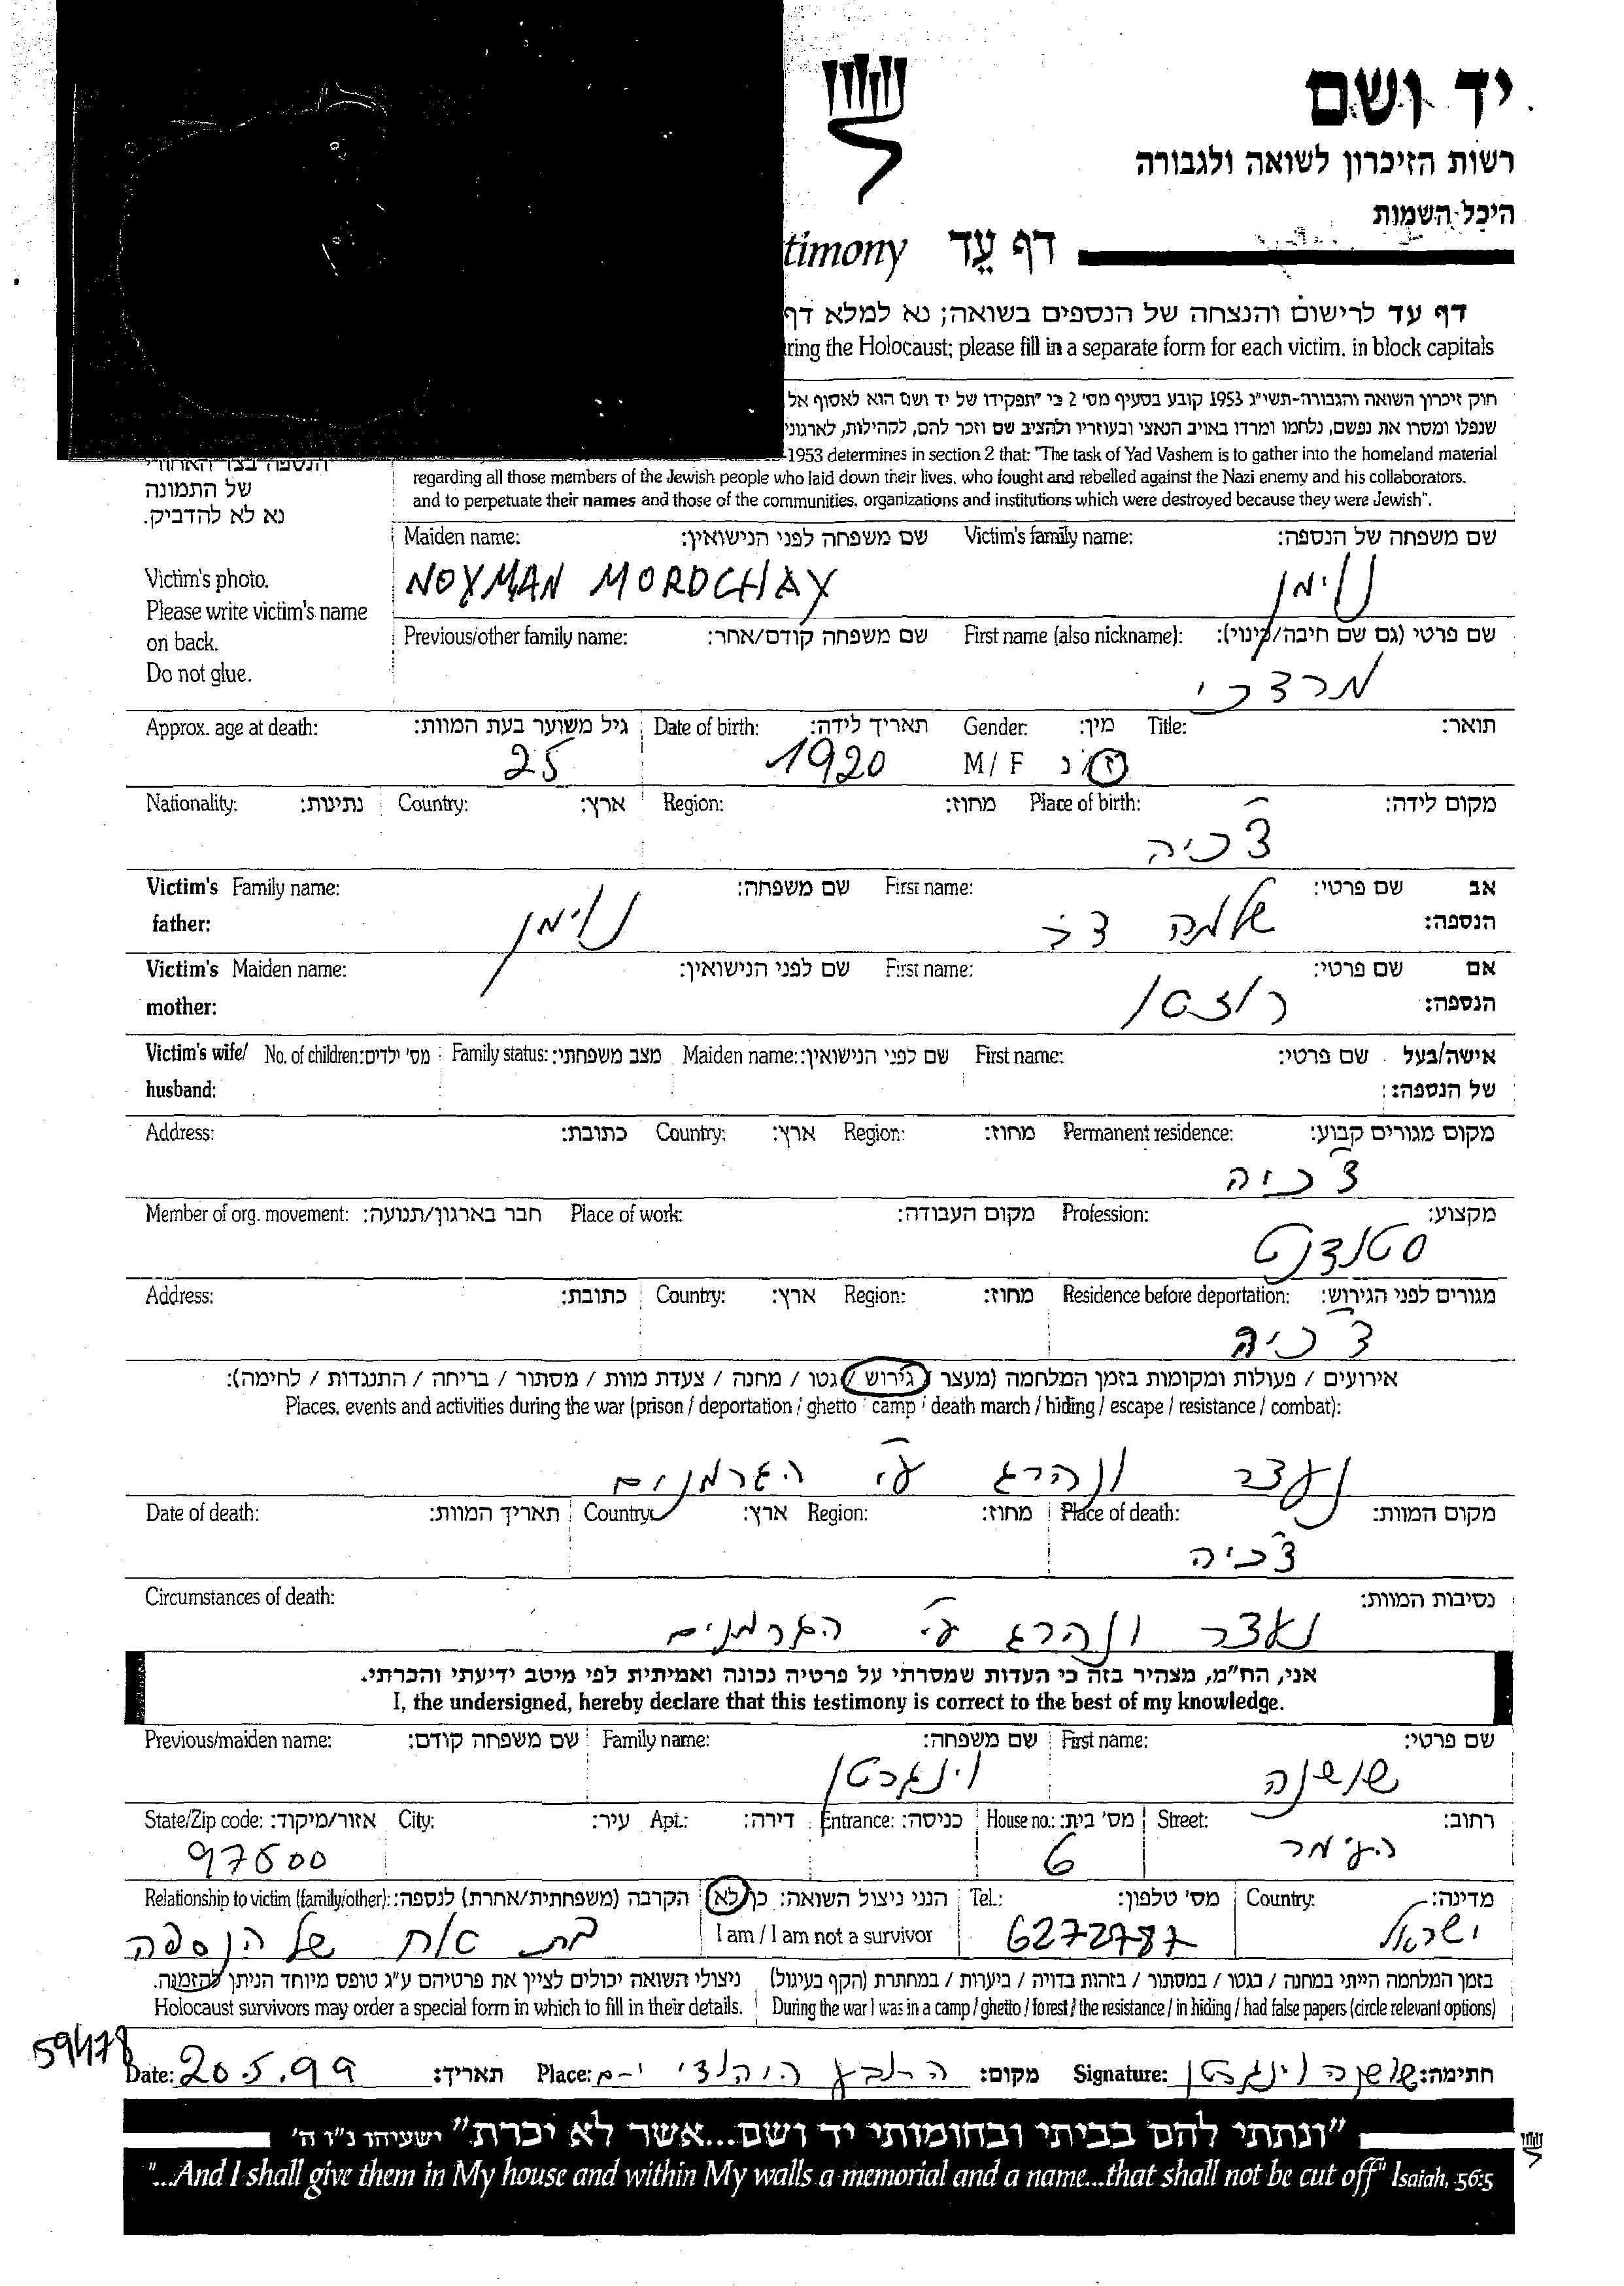 יד ושם
רשות הזיכרון לשואה ולגבורה
היכל השמות
דף עֵד timony
דף עד לרישום והנצחה של הנספים בשואה; נא למלא דף
ring the Holocaust; please fill in a separate form for each victim, in block capitals
חוק זיכרון השואה והגבורה-תשי״ג 1953 קובע בסעיף מס׳ 2 כי ״תפקידו של יד ושם הוא לאסוף אל
שנפלו ומסרו את נפשם, נלחמו ומרדו באויב הנאצי ובעוזריו ולהציב שם וזכר להם, לקהילות, לארגוני
-1953 determines in section 2 that: "The task of Yad Vashem is to gather into the homeland material
regarding all those members of the Jewish people who laid down their lives, who fought and rebelled against the Nazi enemy and his collaborators,
and to perpetuate their names and those of the communities, organizations and institutions which were destroyed because they were Jewish".
הנספה בצד האחורי
של התמונה
נא לא להדביק.
Victim's photo.
Please write victim's name
on back.
Do not glue.
שם משפחה של הנספה: Victim's family name: שם משפחה לפני הנישואין: Maiden name:
נוימן NOYMAN MORDCHAY
שם פרטי (גם שם חיבה/כינוי): First name (also nickname): שם משפחה קודם/אחר: Previous/other family name:
מרדכי
תואר: Title: מין: Gender: תאריך לידה: Date of birth: גיל משוער בעת המוות: Approx. age at death:
ז/נ M/F 1920 25
מקום לידה: Place of birth: מחוז: Region: ארץ: Country: נתינות: Nationality:
צ'כיה
אב שם פרטי: First name: שם משפחה: Victim's Family name:
הנספה: father:
שלמה נוימן
אם שם פרטי: First name: שם לפני הנישואין: Victim's Maiden name:
הנספה: mother:
אישה/בעל שם פרטי: First name: שם לפני הנישואין: Maiden name: מצב משפחתי: Family status: מס' ילדים: No. of children: Victim's wife/
של הנספה: husband:
מקום מגורים קבוע: Permanent residence: מחוז: Region: ארץ: Country: כתובת: Address:
צ'כיה
מקצוע: Profession: מקום העבודה: Place of work: חבר בארגון/תנועה: Member of org. movement:
סטודנט
מגורים לפני הגירוש: Residence before deportation: מחוז: Region: ארץ: Country: כתובת: Address:
צ'כיה
אירועים / פעולות ומקומות בזמן המלחמה (מעצר / גירוש / גטו / מחנה / צעדת מוות / מסתור / בריחה / התנגדות / לחימה):
Places, events and activities during the war (prison / deportation / ghetto / camp / death march / hiding / escape / resistance / combat):
נעצר ונהרג ע"י הגרמנים
מקום המוות: Place of death: מחוז: Region: ארץ: Country: תאריך המוות: Date of death:
צ'כיה
נסיבות המוות: Circumstances of death:
נעצר ונהרג ע"י הגרמנים
אני, הח״מ, מצהיר בזה כי העדות שמסרתי על פרטיה נכונה ואמיתית לפי מיטב ידיעתי והכרתי.
I, the undersigned, hereby declare that this testimony is correct to the best of my knowledge.
שם פרטי: First name: שם משפחה: Family name: שם משפחה קודם: Previous/maiden name:
שושנה וינגרטן
רחוב: Street: מס' בית: House no.: כניסה: Entrance: דירה: Apt.: עיר: City: אזור/מיקוד: State/Zip code:
6 97600
מדינה: Country: מס' טלפון: Tel.: הנני ניצול השואה: כן/לא הקרבה (משפחתית/אחרת) לנספה: Relationship to victim (family/other):
I am / I am not a survivor
ישראל 6272787 בת אח של הנספה
בזמן המלחמה הייתי במחנה / בגטו / במסתור / בזהות בדויה / ביערות / במחתרת (הקף בעיגול)
During the war I was in a camp / ghetto / forest / the resistance / in hiding / had false papers (circle relevant options)
ניצולי השואה יכולים לציין את פרטיהם ע״ג טופס מיוחד הניתן להזמנה.
Holocaust survivors may order a special form in which to fill in their details.
59478
חתימה: Signature: שושנה וינגרטן מקום: Place: תאריך: Date: 20.5.99
״ונתתי להם בביתי ובחומותי יד ושם...אשר לא יכרת״ ישעיהו נ״ו ה׳
"...And I shall give them in My house and within My walls a memorial and a name...that shall not be cut off" Isaiah, 56:5